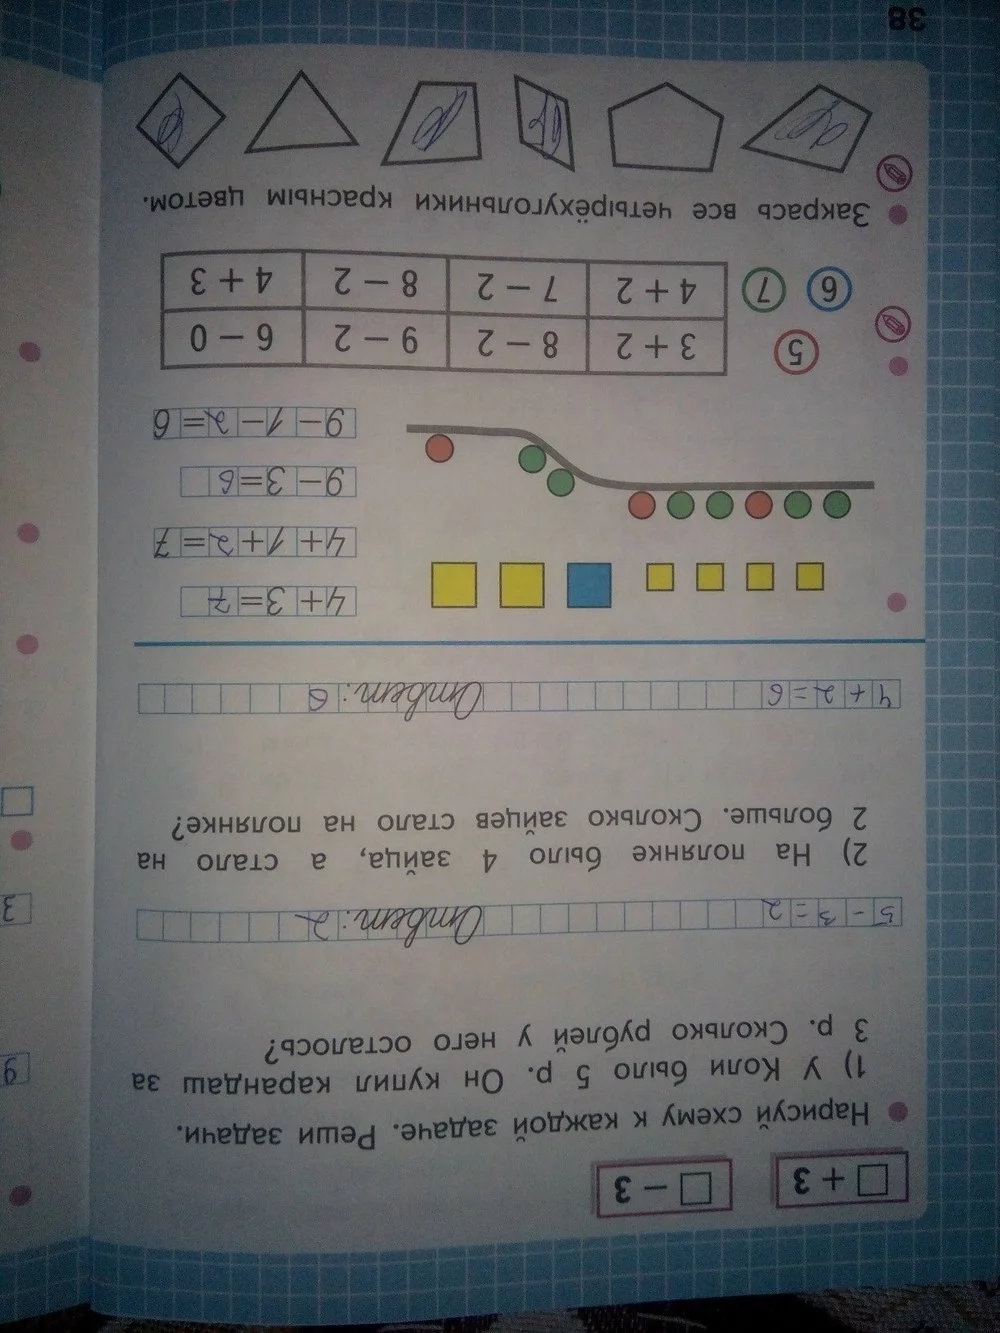 □ + 3
□ − 3
Нарисуй схему к каждой задаче. Реши задачи.
1) У Коли было 5 р. Он купил карандаш за
3 р. Сколько рублей у него осталось?
5 − 3 = 2 Ответ: 2
2) На полянке было 4 зайца, а стало на
2 больше. Сколько зайцев стало на полянке?
4 + 2 = 6 Ответ: 6
4 + 3 = 7
4 + 1 + 2 = 7
9 − 3 = 6
9 − 1 − 2 = 6
5
6 7
3 + 2 8 − 2 9 − 2 6 − 0
4 + 2 7 − 2 8 − 2 4 + 3
Закрась все четырёхугольники красным цветом.
38
3
9